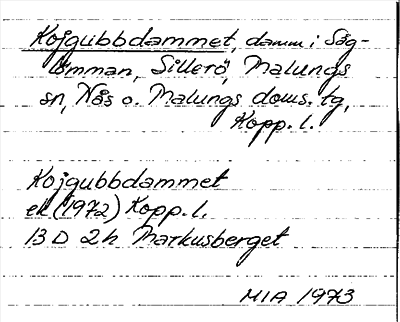 Kojgubbdammet, damm i Såg-
tömman, Sillerö, Malungs
sn, Nås o. Malungs doms. tg,
Kopp. l.
Kojgubbdammet
ek (1972) Kopp. l.
13 D 2h Markusberget
MIA 1973